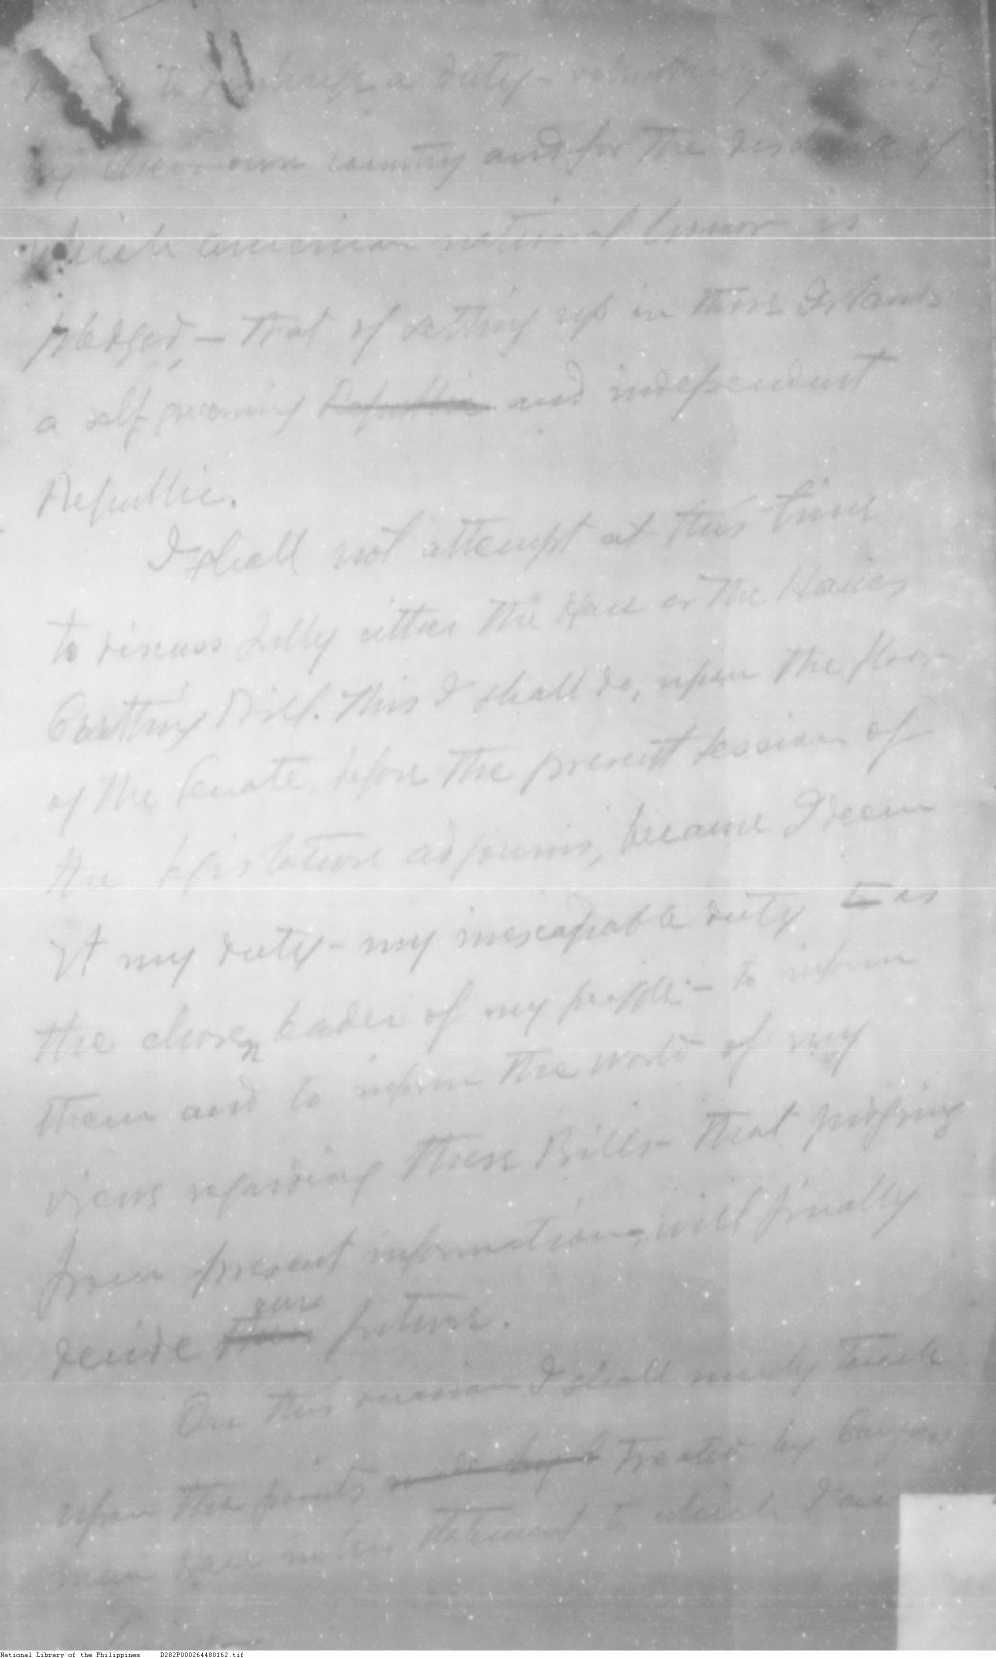 to discharge a duty - voluntarily
by their own country and for the discharge of
which American national honor is
pledged, - that of setting up in these Islands
a self governing Republic and independent
Republic.
I shall not attempt at this time
to discuss fully either the Hare or the Hawes
Cutting Bill. This I shall do, upon the floor
of the Senate, before the present session of
the Legislature adjourns, because I deem
it my duty - my inescapable duty to as
the chosen leader of my people - to inform
them and to inform the world of my
views regarding these Bills - that judging
from present information, will finally
ours
decide their future.
On this occasion I shall merely touch
upon the points treated by Congress
man Hare in his statement to which I am
National Library of the Philippines D282P000264480162.tif